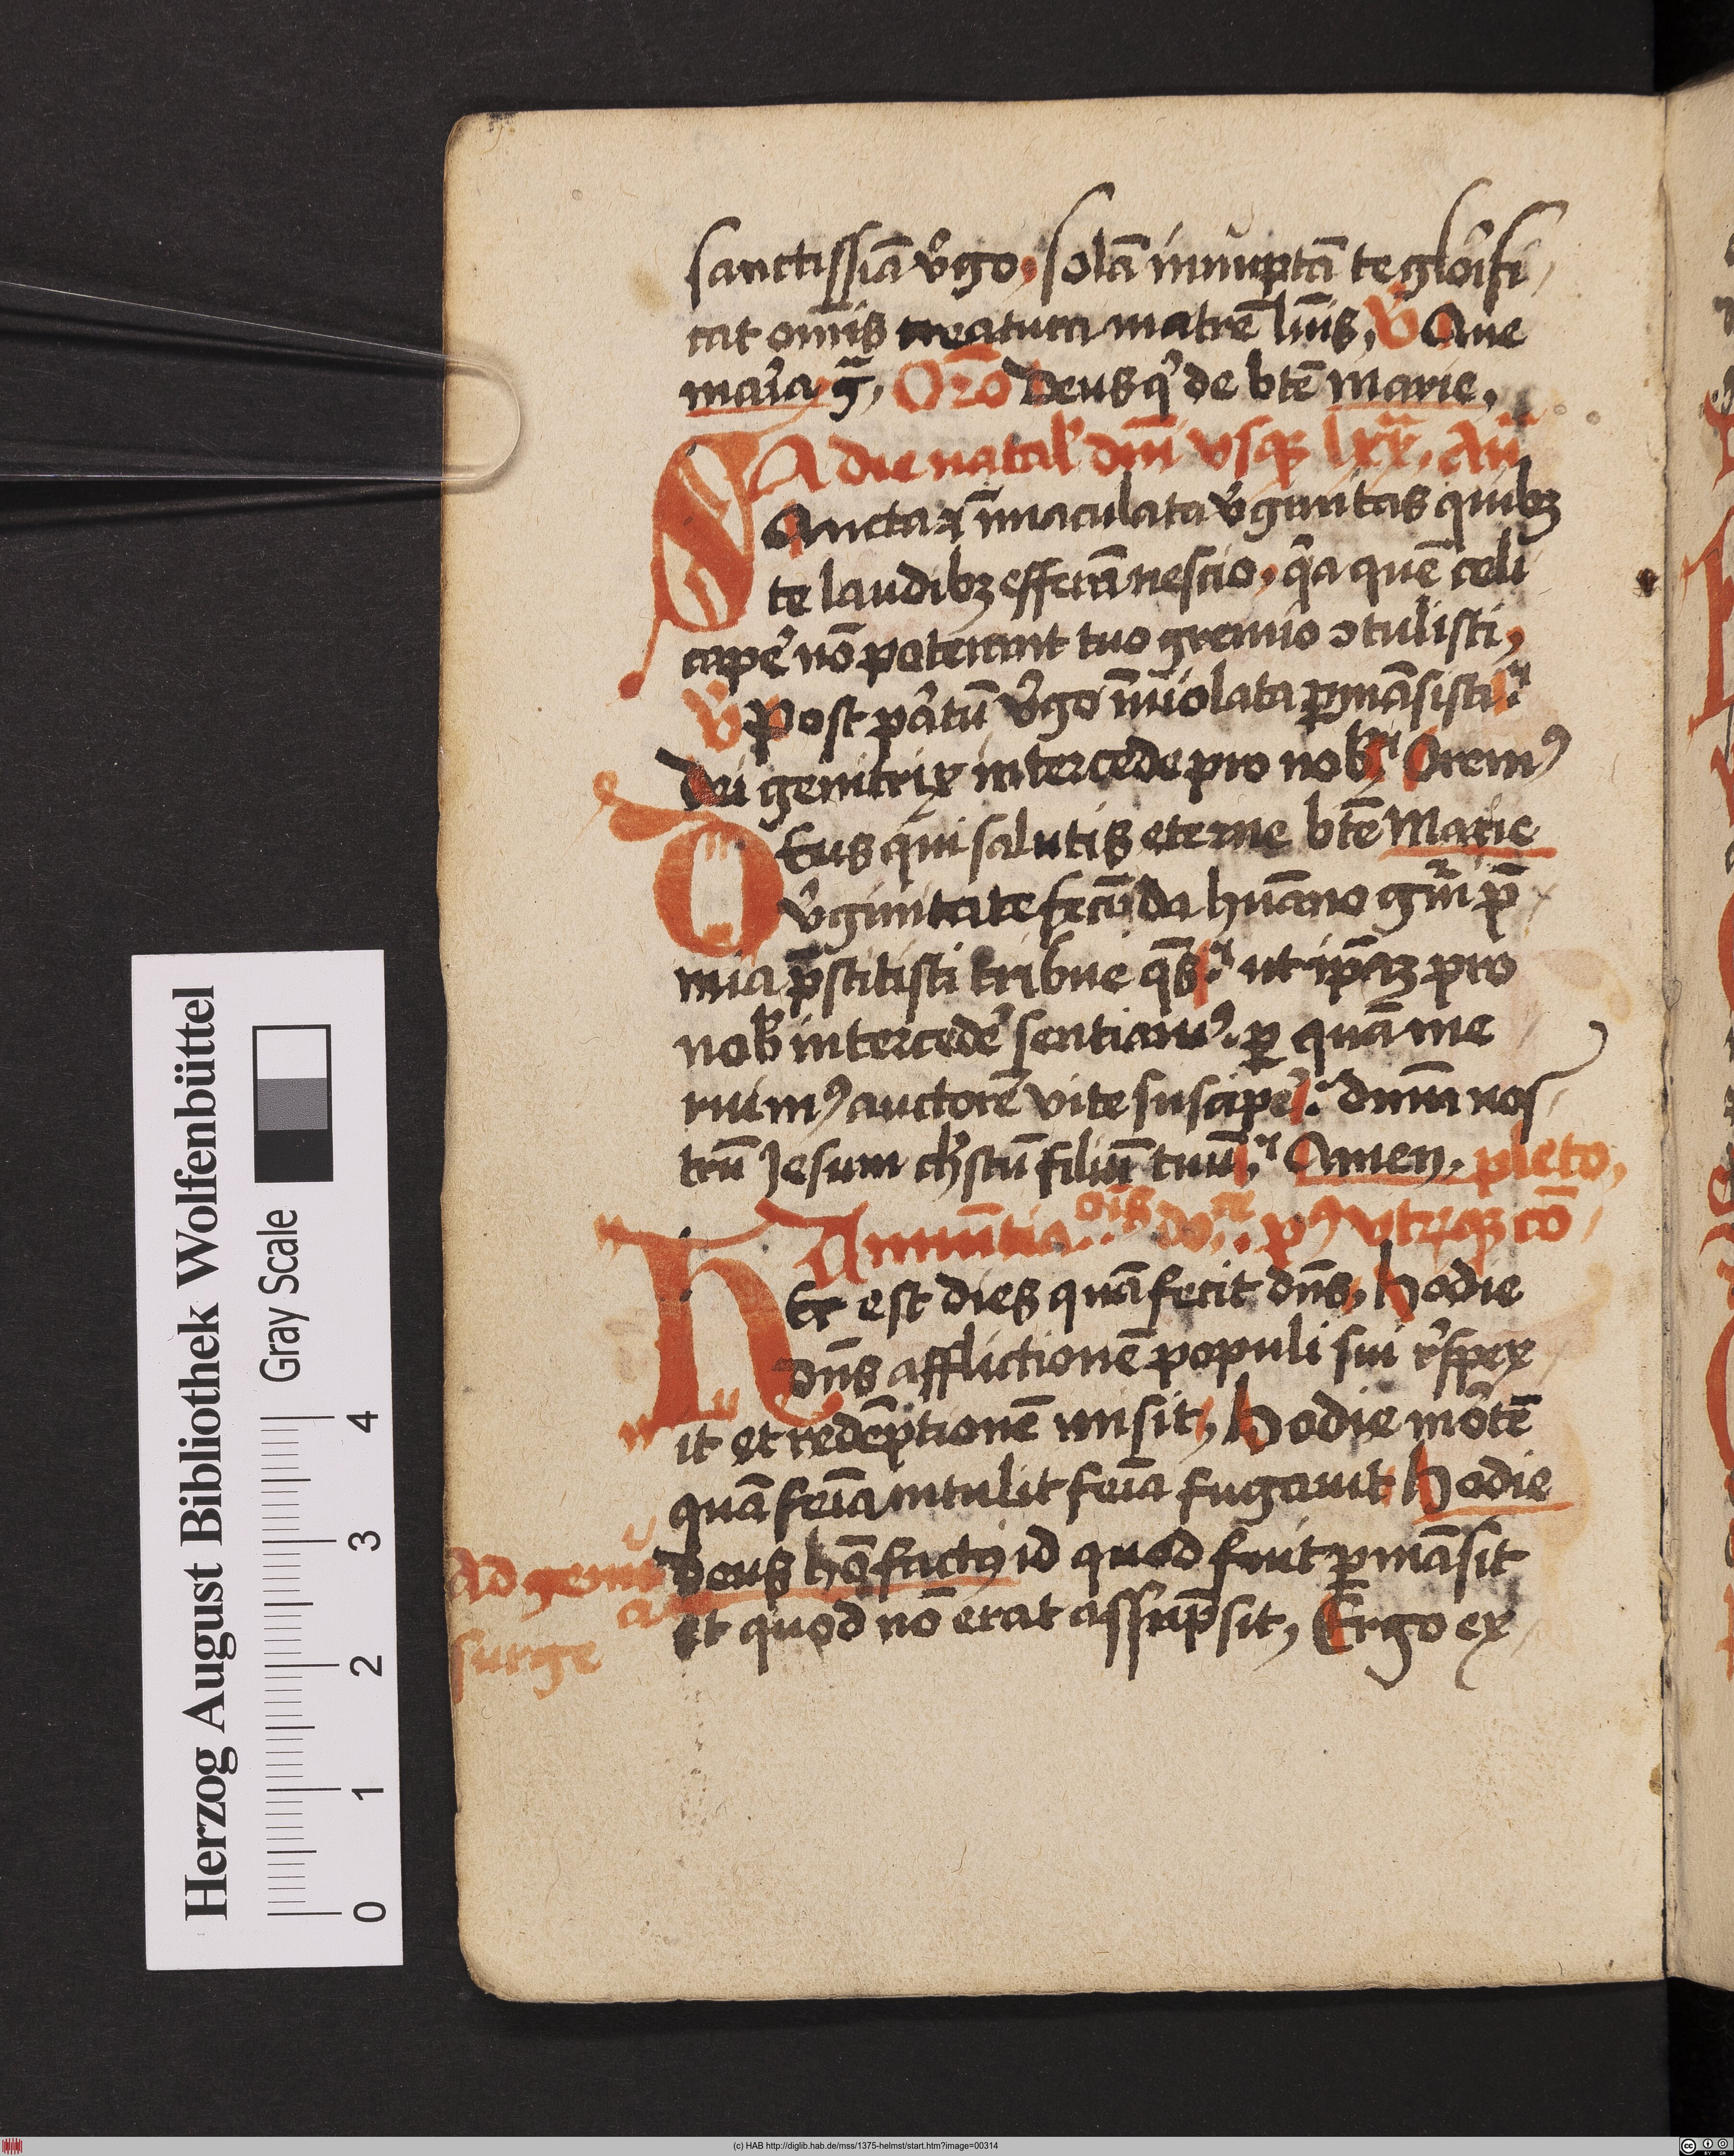 sanctissiā v̓go, solā innuptā te glōifi
cat oīm̄s creatura matrē lūīs, V̓ Aue
mar̓ia ḡ, Orō Deus q̓ de btē Marie,
A die natal' dn̄i vsq3 lxx̄, Añ
SAncta ⁊ īmaculata v̓ginitas quib3
te laudib3 efferā nescio, q̄a quē celi
cape̓ nō poterant tuo gremio ꝯtulisti,
V̓ Post p̓atū v̓go īuiolata ꝑmāsisti
Dei genitrix intercede pro nob̓ Oremꝰ
DEus qui salutis eterne btē Marie
v̓ginitate fecūda hūano gn̄i p̄
mia p̄stitisti tribue q̄s ut ip̄a3 pro
nob̓ intercede̓ sentiamꝰ. ꝑ quā me
ruimꝰ auctorē vite suscipe̓ dnm̄ nos
trū Jesum ch̓stū filiū tuū Amen. pleto,
Annūtia oīs do. re. pꝰ vtrūq3 cō
HEc est dies quā fecit dn̄s, hodie
dn̄s afflictionē populi sui r̓spex
it et redēptionē misit, hodie mōtē
quā feīa intulit feīa fugauit hodie
Ad genu Deus hō factꝰ id quod fuit ꝑmāsit
et quod nō erat assūpsit, Ergo ex
surge
Herzog August Bibliothek Wolfenbüttel
Gray Scale
0 1 2 3 4
(c) HAB http://diglib.hab.de/mss/1375-helmst/start.htm?image=00314